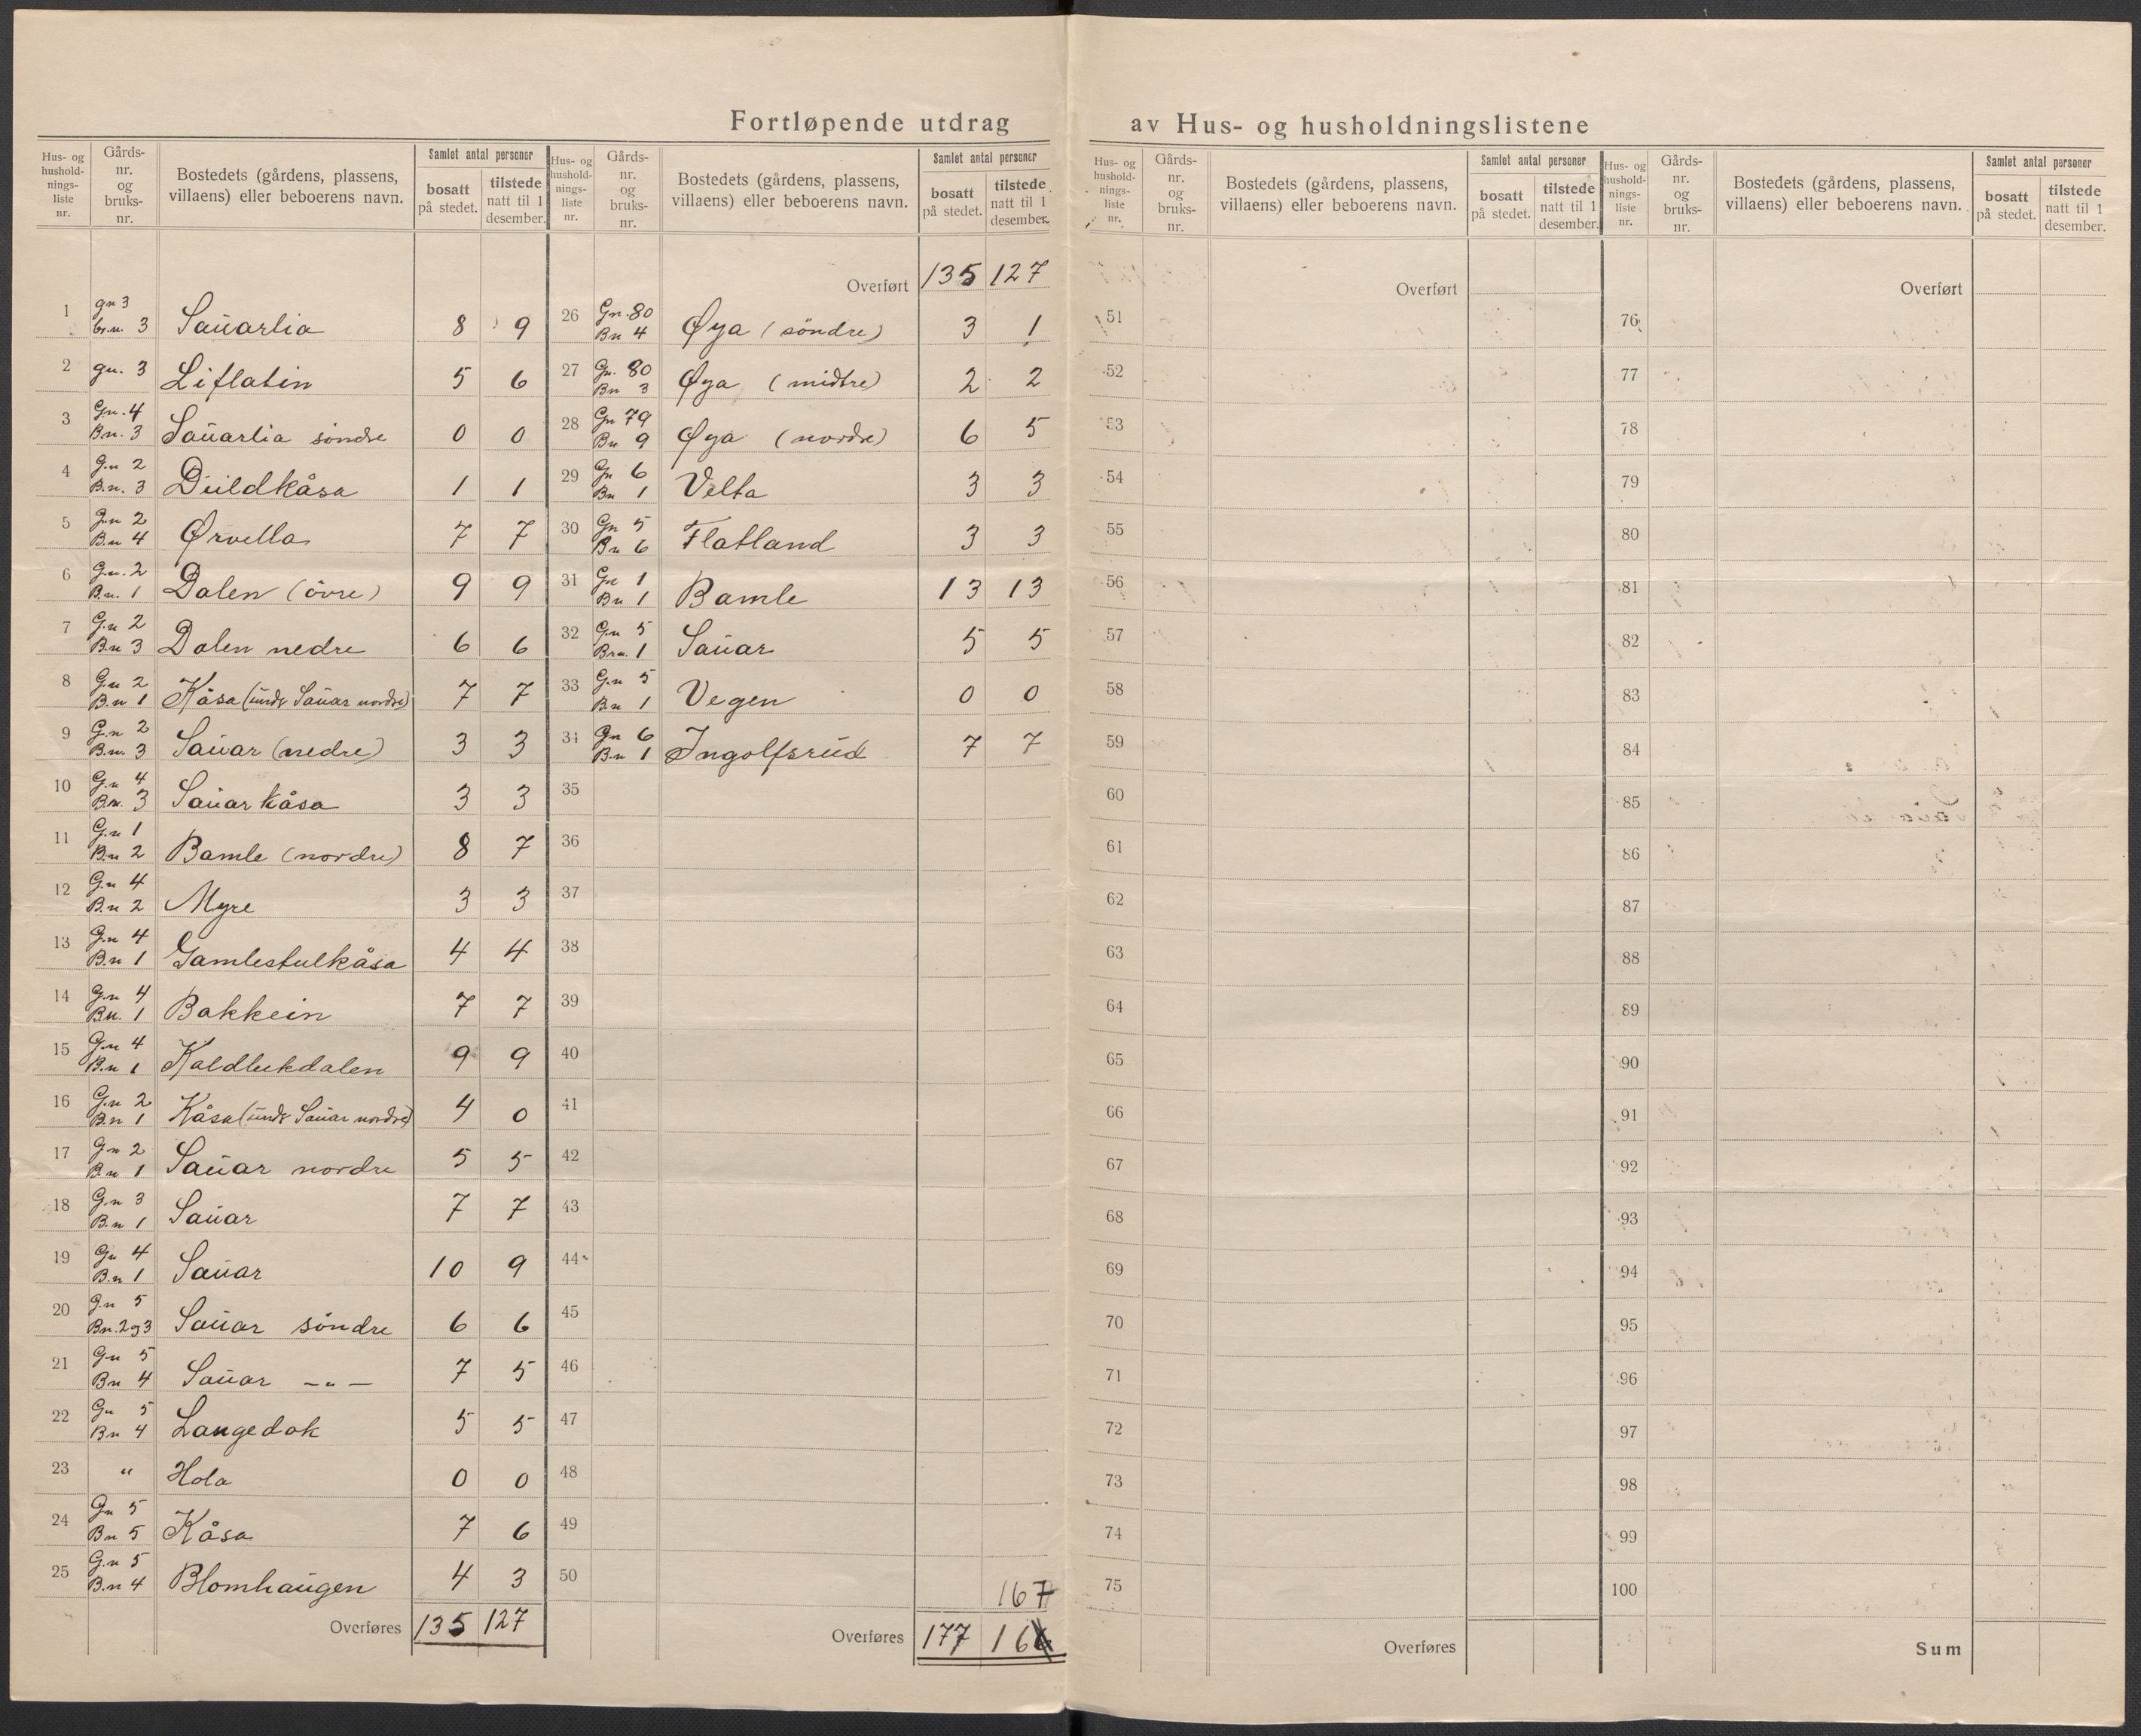 Fortløpende utdrag av Hus- og husholdningslistene
Hus- og hushold- nings- liste nr. Gårds- nr. og bruks- nr. Bostedets (gårdens, plassens, villaens) eller beboerens navn. Samlet antal personer bosatt på stedet. tilstede natt til 1 desember.
1 gn 3 br.n. 3 Saŭarlia 8 9
2 gn. 3 Liflatin 5 6
3 Gn. 4 B.n. 3 Saŭarlia söndre 0 0
4 G.n 2 B.n. 3 Dŭldkåsa 1 1
5 G.n 2 B.n 4 Ørvella 7 7
6 G.n. 2 B.n. 1 Dalen (övre) 9 9
7 G.n 2 B.n 3 Dalen nedre 6 6
8 G.n 2 B.n 1 Kåsa (ŭndr Saŭar nordre) 7 7
9 G.n 2 B.n. 3 Saŭar (nedre) 3 3
10 G.n 4 B.n. 3 Saŭarkåsa 3 3
11 G.n 1 B.n 2 Bamle (nordre) 8 7
12 G.n 4 B.n 2 Myre 3 3
13 G.n 4 B.n 1 Gamlestulkåsa 4 4
14 G.n 4 B.n. 1 Bakkein 7 7
15 G.n 4 B.n 1 Kaldbekdalen 9 9
16 G.n 2 B.n 1 Kåsa (ŭndr Saŭar nordre) 4 0
17 G.n 2 B.n 1 Saŭar nordre 5 5
18 G.n 3 B.n 1 Saŭar 7 7
19 Gn 4 B.n 1 Saŭar 10 9
20 G.n 5 Bn. 2 og 3 Saŭar söndre 6 6
21 Gn 5 Bn 4 Saŭar —"— 7 5
22 Gn 5 Bn 4 Langedok 5 5
23 " Hola 0 0
24 Gn 5 Bn 5 Kåsa 7 6
25 G.n 5 B.n 4 Blomhaŭgen 4 3
Overføres 135 127
Hus- og hushold- nings- liste nr. Gårds- nr. og bruks- nr. Bostedets (gårdens, plassens, villaens) eller beboerens navn. Samlet antal personer bosatt på stedet. tilstede natt til 1 desember.
Overført 135 127
26 Gn. 80 Bn 4 Øya (söndre) 3 1
27 Gn. 80 Bn 3 Øya (midtre) 2 2
28 Gn 79 Bn 9 Øya (nordre) 6 5
29 Gn 6 Bn 1 Velta 3 3
30 Gn 5 Bn 6 Flatland 3 3
31 Gn 1 Bn 1 Bamle 13 13
32 G.n 5 Brn. 1 Saŭar 5 5
33 G.n 5 B.n 1 Vegen 0 0
34 Gn 6 B.n 1 Ingolfsrŭd 7 7
35
36
37
38
39
40
41
42
43
44
45
46
47
48
49
50
167
Overføres 177 166
Hus- og hushold- nings- liste nr. Gårds- nr. og bruks- nr. Bostedets (gårdens, plassens, villaens) eller beboerens navn. Samlet antal personer bosatt på stedet. tilstede natt til 1 desember.
Overført
51
52
53
54
55
56
57
58
59
60
61
62
63
64
65
66
67
68
69
70
71
72
73
74
75
Overføres
Hus- og hushold- nings- liste nr. Gårds- nr. og bruks- nr. Bostedets (gårdens, plassens, villaens) eller beboerens navn. Samlet antal personer bosatt på stedet. tilstede natt til 1 desember.
Overført
76
77
78
79
80
81
82
83
84
85
86
87
88
89
90
91
92
93
94
95
96
97
98
99
100
Sum